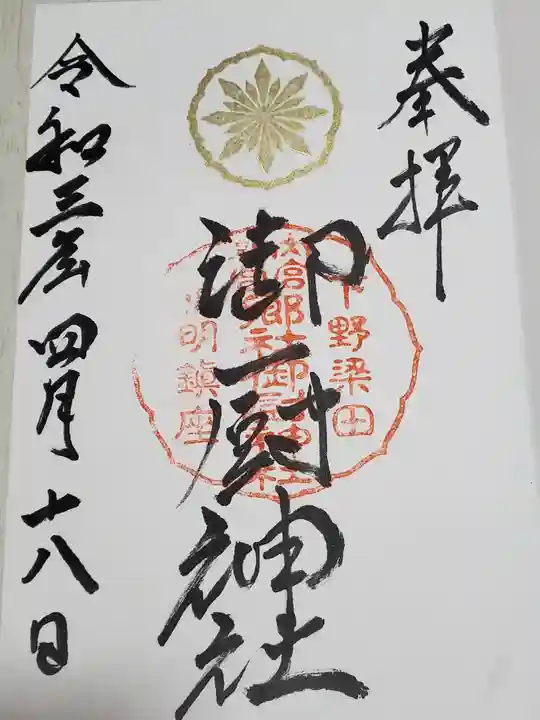 奉拝
御厨神社
下野梁田
明鎮座
令和三年四月十八日